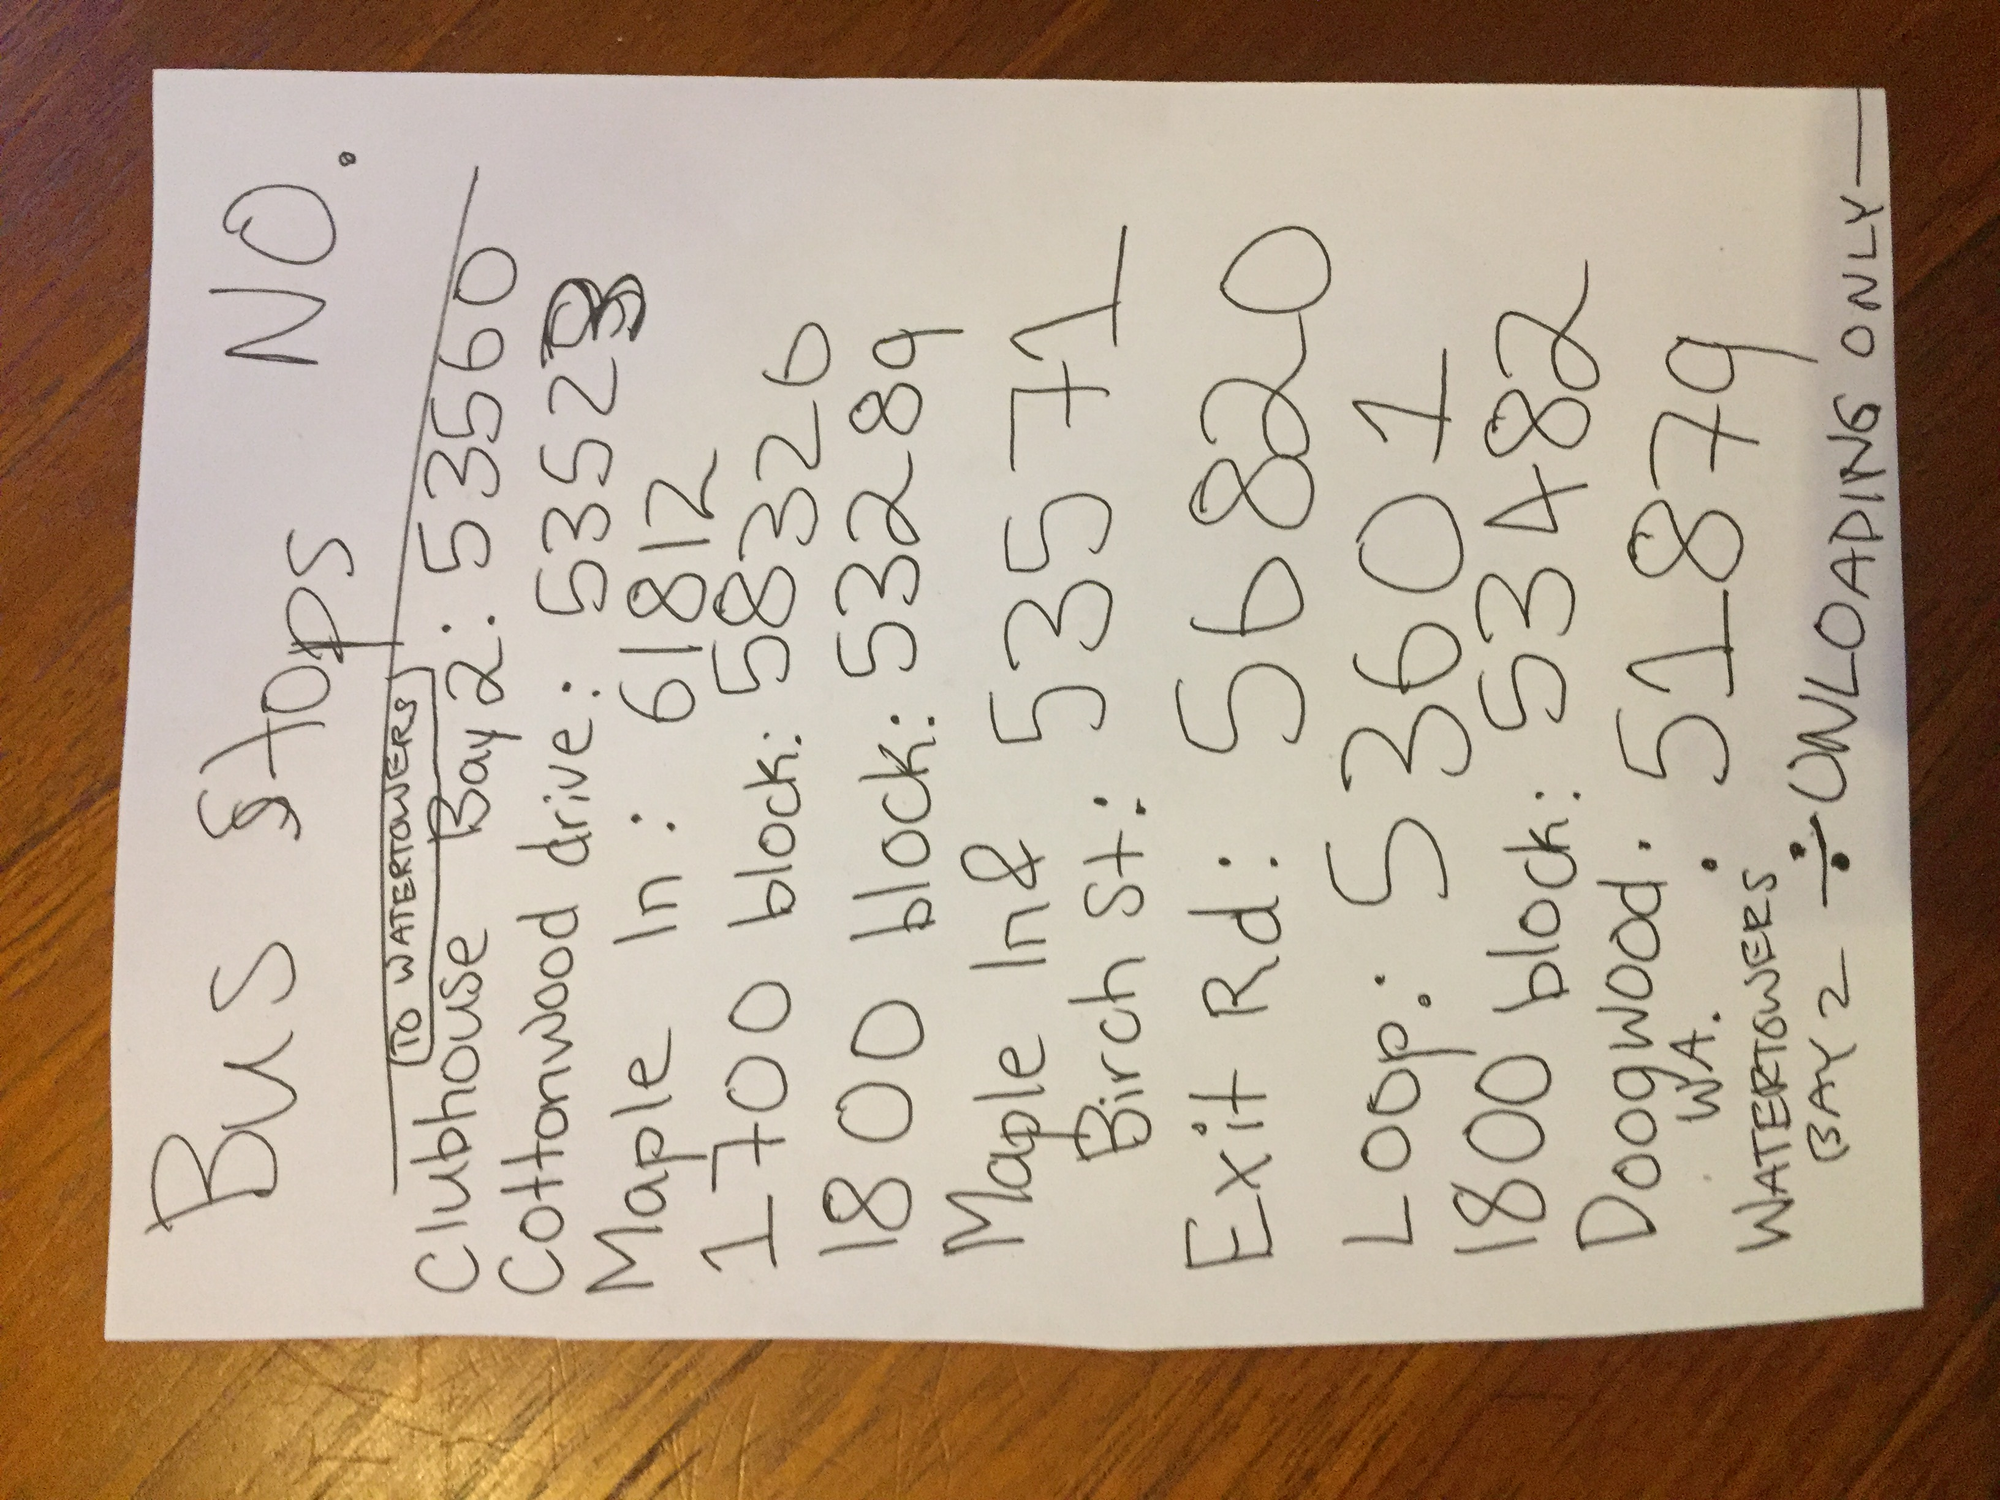 Bus stops NO.
TO WATERTOWERS
Clubhouse Bay 2: 53560
Cottonwood drive: 5352
Maple ln: 61812
1700 block: 58326
1800 block: 53289
Maple ln &
Birch St: 53571
Exit Rd: 56820
Loop: 53601
1800 block: 53482
Doogwood: 51879
WA.
WATERTOWERS :
BAY 2 —÷UNLOADING ONLY—